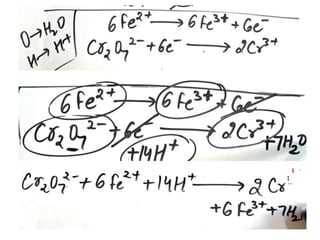 O→H₂O
H→H⁺
6Fe²⁺ ⟶ 6Fe³⁺ + 6e⁻
Cr₂O₇²⁻ + 6e⁻ ⟶ 2Cr³⁺
6Fe²⁺ ⟶ 6Fe³⁺ + 6e⁻
Cr₂O₇²⁻ + 6e⁻ ⟶ 2Cr³⁺
+14H⁺ +7H₂O
Cr₂O₇²⁻ + 6Fe²⁺ + 14H⁺ ⟶ 2Cr
+6Fe³⁺ + 7H₂